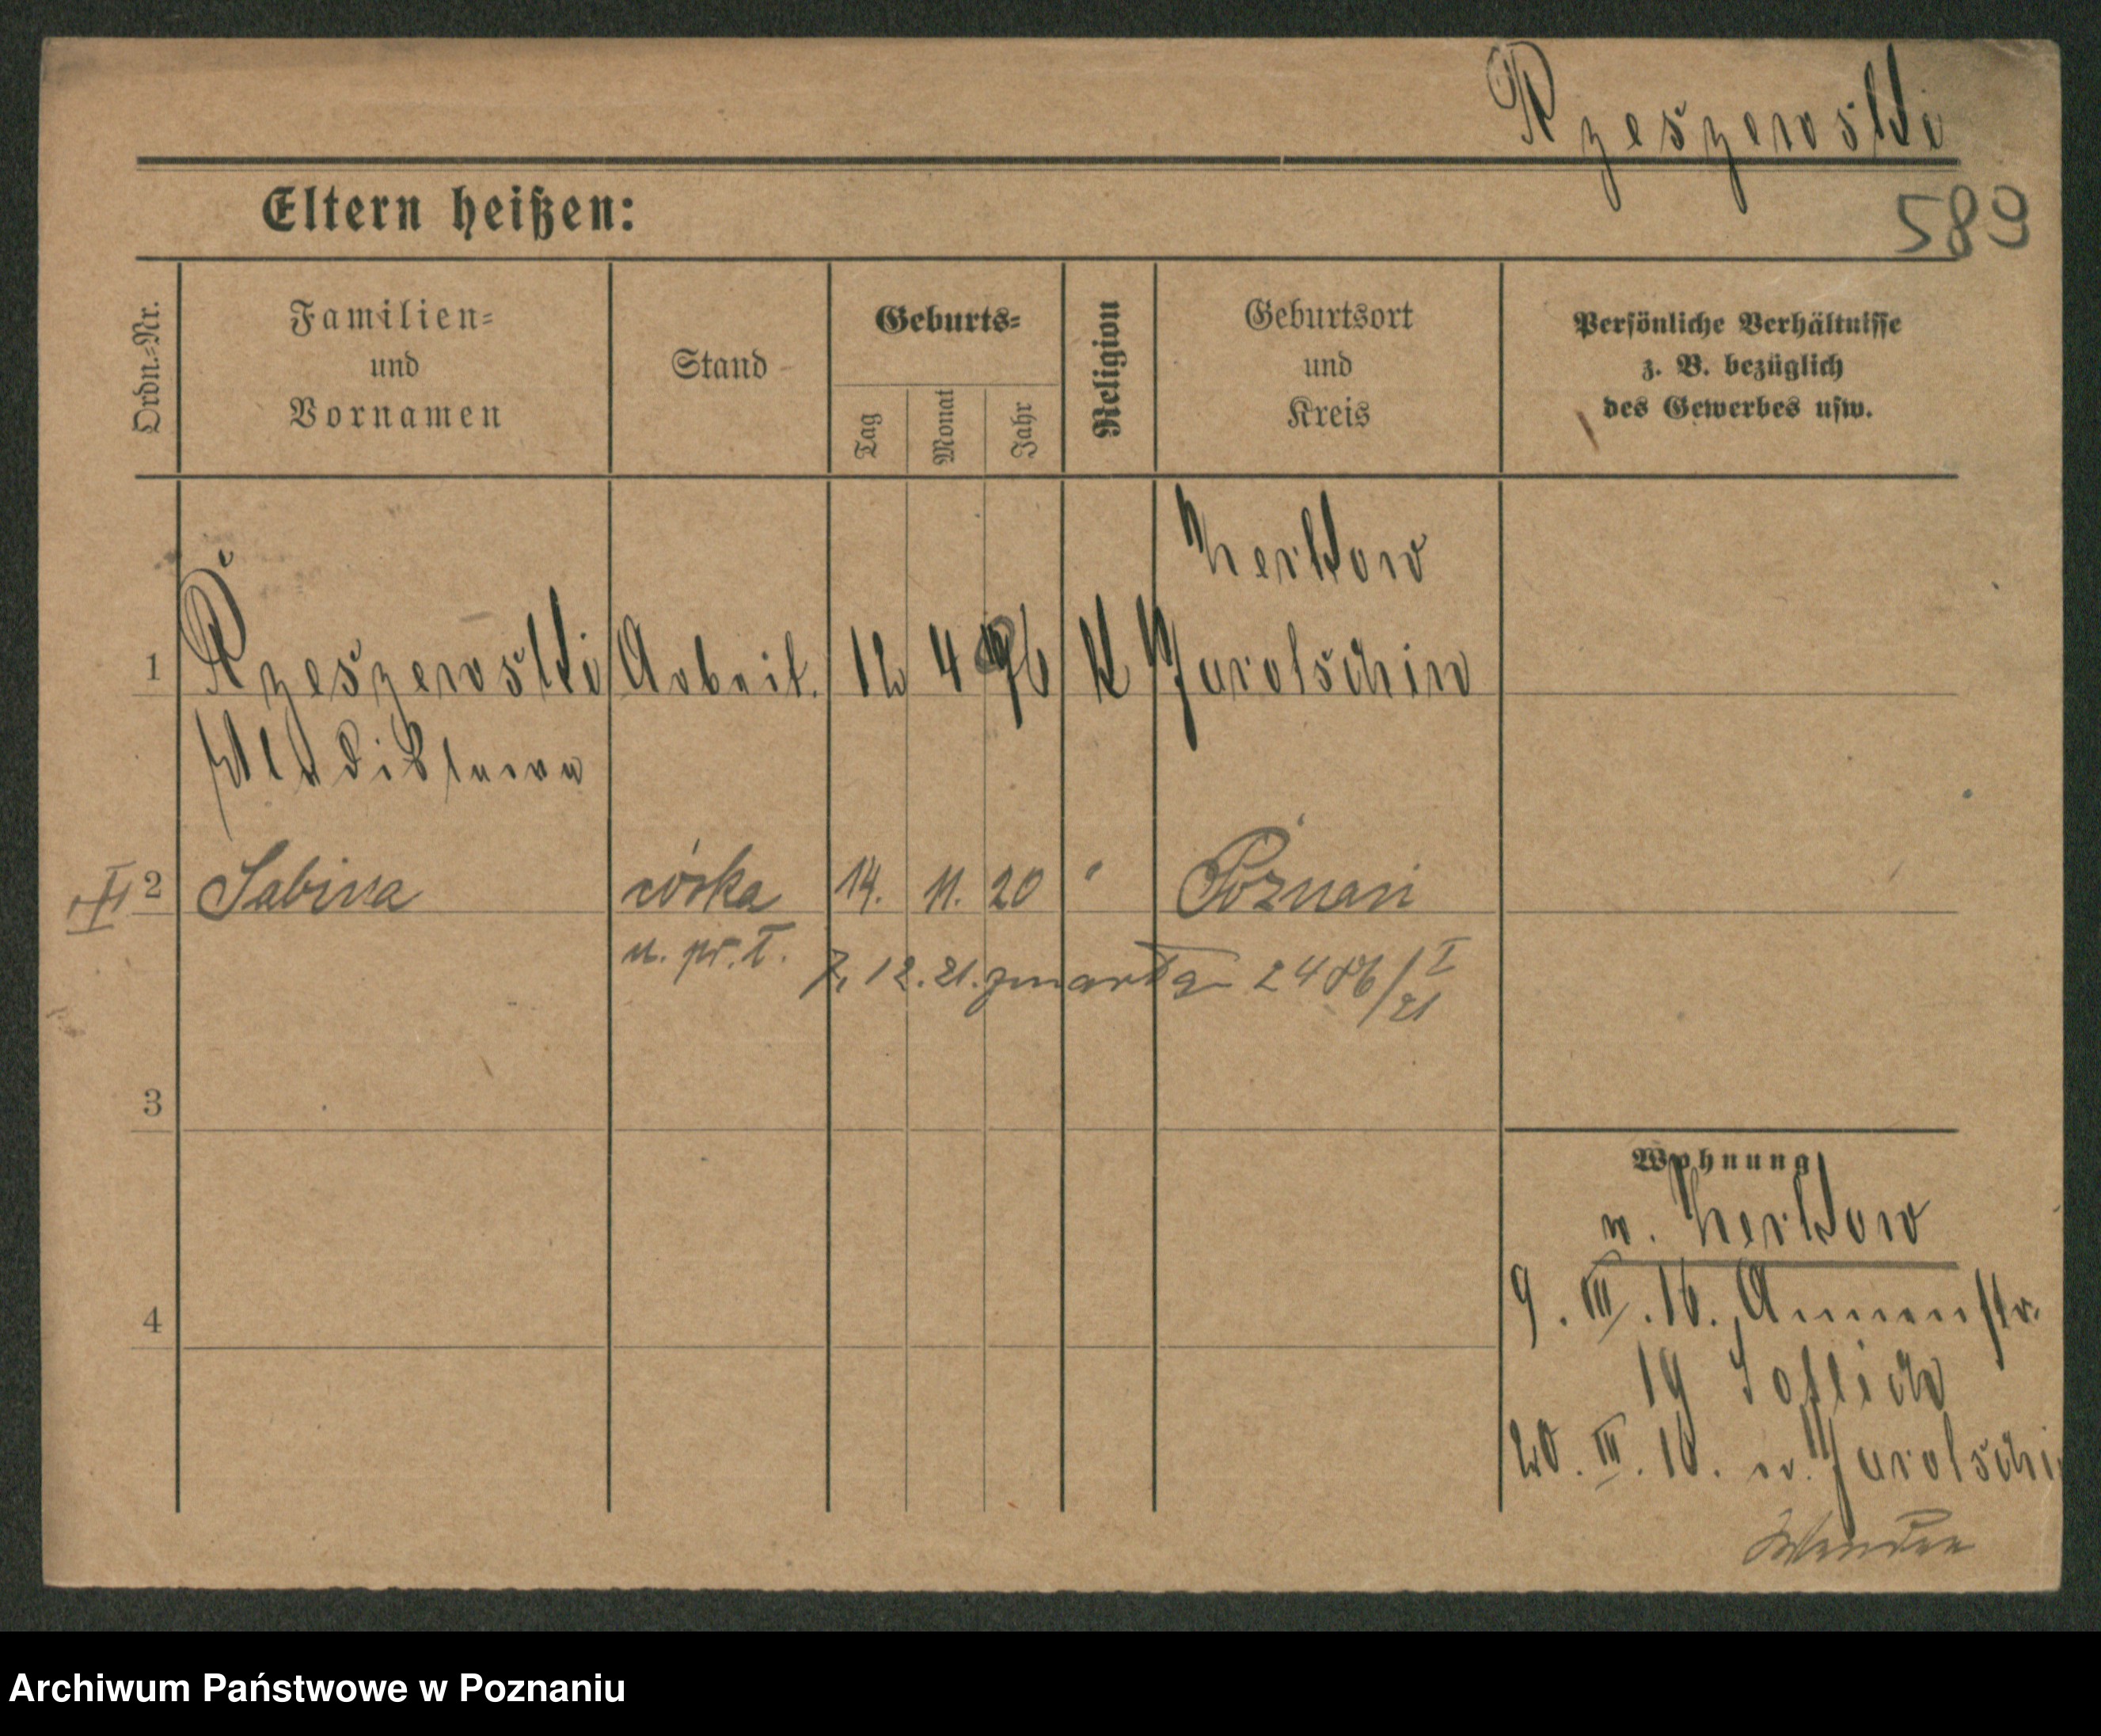 Rzeszewski
589
Eltern heißen:
Ordn.-Nr.
Familien- und Vornamen
Stand
Geburts-
Tag
Monat
Jahr
Religion
Geburtsort und Kreis
Persönliche Verhältnisse
z. B. bezüglich
des Gewerbes usw.
Zerkow
1 Rzeszewski Arbeit. 12 4 96 K Jarotschin
Wladislawa
2 Sabina córka 14. 11. 20 " Poznań
n. pr. T. 7. 12. 21. zmarła 2486/I 21
3
4
Wohnung
v. Zerkow
9. III. 16. Annenstr.
19
20. III. 16. n. Jarotschi
Wenden
Archiwum Państwowe w Poznaniu